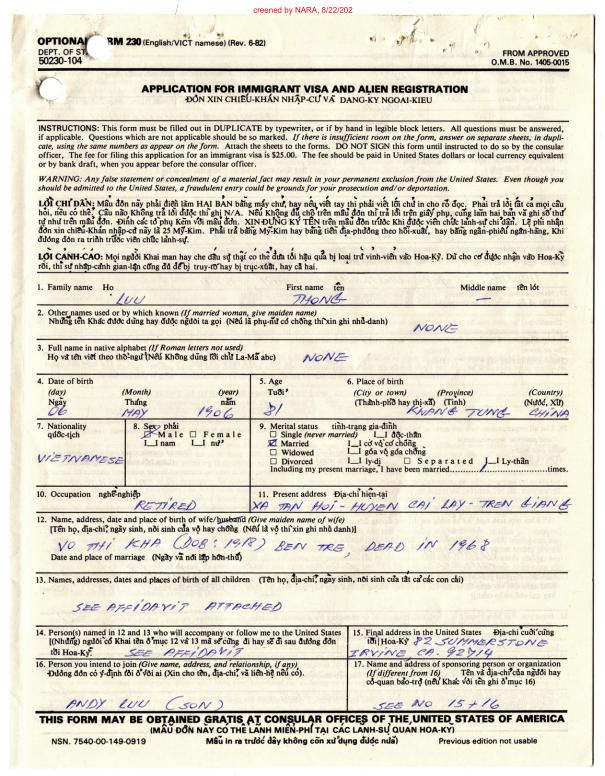 creened by NARA, 8/22/202
OPTIONAL FORM 230 (English/VICT namese) (Rev. 6-82)
DEPT. OF ST
50230-104
FROM APPROVED
O.M.B. No. 1405-0015
APPLICATION FOR IMMIGRANT VISA AND ALIEN REGISTRATION
ĐỒN XIN CHIẾU-KHÁN NHẬP-CƯ VÀ DANG-KY NGOAI-KIEU
INSTRUCTIONS: This form must be filled out in DUPLICATE by typewriter, or if by hand in legible block letters. All questions must be answered,
if applicable. Questions which are not applicable should be so marked. If there is insufficient room on the form, answer on separate sheets, in dupli-
cate, using the same numbers as appear on the form. Attach the sheets to the forms. DO NOT SIGN this form until instructed to do so by the consular
officer, The fee for filing this application for an immigrant visa is $25.00. The fee should be paid in United States dollars or local currency equivalent
or by bank draft, when you appear before the consular officer.
WARNING: Any false statement or concealment of a material fact may result in your permanent exclusion from the United States. Even though you
should be admitted to the United States, a fraudulent entry could be grounds for your prosecution and/or deportation.
LỜI CHỈ DẪN: Mẫu đơn này phải điện làm HAI BẢN bằng mấy chử, hay nếu viết tay thì phải viết lối chử in cho rõ đọc. Phải trả lời tất cả mọi câu
hỏi, nếu có thể. Câu nào Không trả lời được thì ghi N/A. Nếu Không đủ chỗ trên mẫu đơn thì trả lời trên giấy phụ, cung làm hai bản và ghi số thứ
tự như trên mẫu đơn. Đính các tờ phụ Kèm với mẫu đơn. XIN ĐỪNG KÝ TÊN trên mẫu đơn trước Khi được viên chức lãnh-sự chỉ dẫn. Lệ phí nhận
đơn xin chiếu-Khán nhập-cư này là 25 Mỹ-Kim. Phải trả bằng Mỹ-Kim hay bằng tiền địa-phương theo hối-xuất, hay bằng ngân-phiếu ngân-hàng, Khi
đương đơn ra trình trước viên chức lãnh-sự.
LỜI CẢNH-CÁO: Mọi người Khai man hay che dấu sự thật có thể đưa tới hậu quả bị loại trừ vĩnh-viễn vào Hoa-Kỳ. Dù cho có được nhận vào Hoa-Kỳ
rồi, thì sự nhập-cảnh gian-lận cũng đủ để bị truy-tố hay bị trục-xuất, hay cả hai.
1. Family name Ho First name tên Middle name tên lót
LUU THONG —
2. Other names used or by which known (If married woman, give maiden name)
Những tên Khác được dùng hay được người ta gọi (Nếu là phụ-nữ có chồng thì xin ghi nhủ-danh)
NONE
3. Full name in native alphabet (If Roman letters not used)
Họ và tên viết theo thổ-ngữ (Nếu Không dùng lối chử La-Mã abc) NONE
4. Date of birth 5. Age 6. Place of birth
(day) (Month) (year) Tuổi (City or town) (Province) (Country)
Ngày Tháng năm (Thành-phố hay thị-xã) (Tỉnh) (Nước, Xứ)
06 MAY 1906 81 KWANG TUNG CHINA
7. Nationality 8. Sex phái 9. Merital status tình-trạng gia-đình
quốc-tịch Male Female Single (never married) độc-thân
nam nữ Married có vợ có chồng
VIETNAMESE Widowed góa vợ góa chồng
Divorced ly-dị Separated Ly-thân
Including my present marriage, I have been married times.
10. Occupation nghề-nghiệp 11. Present address Địa-chỉ hiện-tại
RETIRED XA TAN HOI - HUYEN CAI LAY - TREN GIANG
12. Name, address, date and place of birth of wife/husband (Give maiden name of wife)
[Tên họ, địa-chỉ, ngày sinh, nôi sinh của vộ hay chồng (Nếu là vô thì xin ghi nhủ danh)]
VO THI KHA (DOB: 1918) BEN TRE, DEAD IN 1968
Date and place of marriage (Ngày và nơi lập hôn-thú)
13. Names, addresses, dates and places of birth of all children (Tên họ, địa-chỉ, ngày sinh, nôi sinh của tất cả các con cái)
SEE AFFIDAVIT ATTACHED
14. Person(s) named in 12 and 13 who will accompany or follow me to the United States
[(Những) người có Khai tên ở mục 12 và 13 mà sẽ cùng đi hay sẽ đi sau đương đơn
tới Hoa-Kỳ. SEE AFFIDAVIT
15. Final address in the United States Địa-chỉ cuối cùng
tới Hoa-Kỳ 82 SUMMERSTONE
IRVINE CA. 92714
16. Person you intend to join (Give name, address, and relationship, if any)
Đương đơn có ý-định tới ở với ai (Xin cho tên, địa-chỉ, và liên-hệ nếu có).
ANDY LUU (SON)
17. Name and address of sponsoring person or organization
(If different from 16) Tên và địa-chỉ của người hay
cơ-quan bảo-trợ (nếu Khác với tên ghi ở mục 16)
SEE NO 15+16
THIS FORM MAY BE OBTAINED GRATIS AT CONSULAR OFFICES OF THE UNITED STATES OF AMERICA
(MẪU ĐƠN NÀY CÓ THỂ LÃNH MIỄN-PHÍ TẠI CÁC LANH-SỰ QUAN HOA-KỲ)
NSN. 7540-00-149-0919 Mẫu in ra trước đây không còn xử dụng được nữa) Previous edition not usable